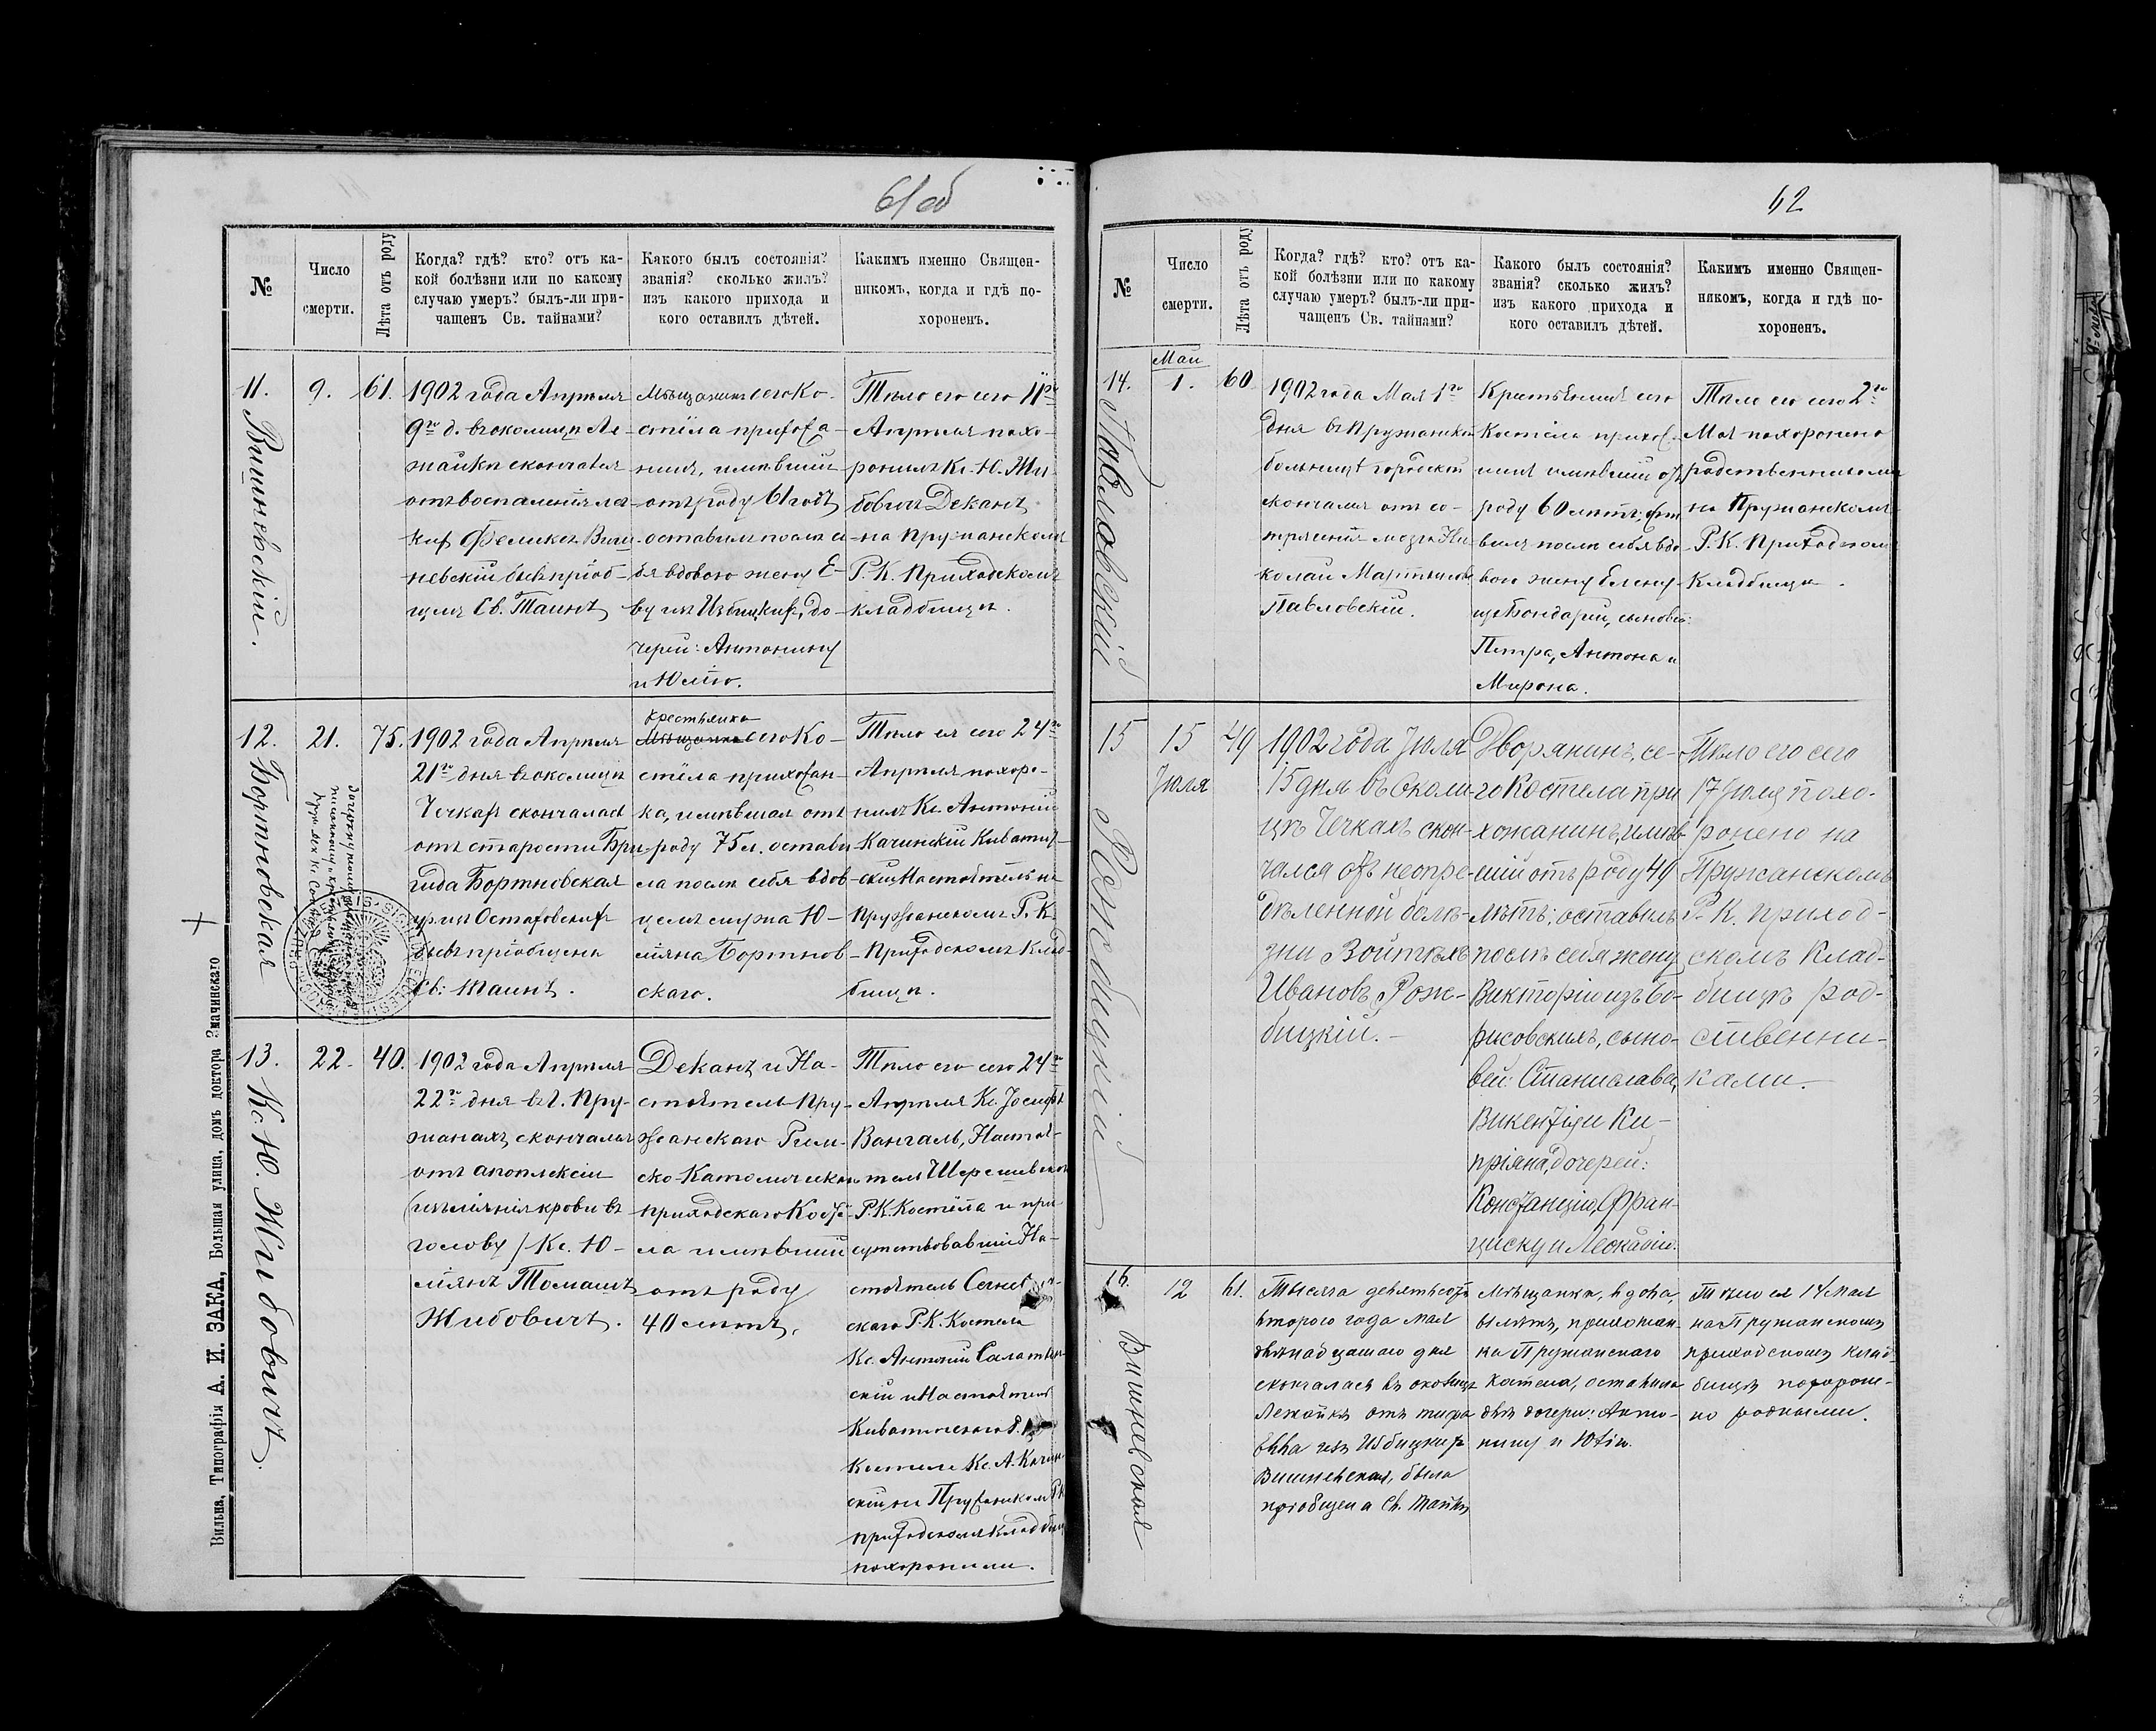 61об
№
Число
смерти.
Лѣта отъ роду
Когда? гдѣ? кто? отъ ка-
кой болѣзни или по какому
случаю умеръ? былъ-ли при-
чащенъ Св. тайнами?
Какого былъ состоянія?
званія? сколько жилъ?
изъ какого прихода и
кого оставилъ дѣтей.
Какимъ именно Священ-
никомъ, когда и гдѣ по-
хороненъ.
11.
Вишневскій.
9.
61.
1902 года Апрѣля
9го д. въ околицѣ Ле-
жайкѣ скончался
отъ воспаленія лег-
кихъ Феликсъ Виш-
невскій бывъ пріоб-
щенъ Св. Таинъ
Мѣщанинъ сего Ко-
стёла прихожа-
нинъ, имѣвшій
отъ роду 61 годъ
оставилъ послѣ се-
бя вдовою жену Е-
ву изъ Избицкихъ, до-
черей: Антонину
и Юлію.
Тѣло его сего 11го
Апрѣля похо-
ронилъ Кс. Ю. Жи-
бовичъ Деканъ
на Пружанскомъ
Р. К. Приходскомъ
кладбищѣ.
12.
Бортновская
21.
75.
1902 года Апрѣля
21го дня въ околицѣ
Чечкахъ скончалась
отъ старости Бри-
гида Бортновская
бывъ пріобщена
Св: Таинъ.
Крестьянка
Мѣщанка сего Ко-
стёла прихожан-
ка, имѣвшая отъ
роду 75 л. остави-
ла послѣ себя вдов-
цемъ мужа Ю-
ліяна Бортнов-
скаго.
Тѣло ея сего 24го
Апрѣля похоро-
нилъ Кс. Антоній
Качинскій Киватиц-
кій Настоятель на
Пружанскомъ Р. К.
Приходскомъ Клад-
бищѣ.
13.
Кс. Ю. Жибовичъ.
22.
40.
1902 года Апрѣля
22го дня въ г. Пру-
жанахъ скончался
отъ апоплексіи
(изліянія крови въ
голову) Кс. Ю-
ліянъ Томашъ
Жибовичъ.
Деканъ и На-
стоятель Пру-
жанскаго Рим-
ско-Католическаго
приходскаго Костё-
ла имѣвшій
отъ роду
40 лѣтъ.
Тѣло его сего 24го
Апрѣля Кс. Іосифъ
Вангаль, Настоя-
тель Шерешевскаго
Р. К. Костёла и при-
сутствовавшій На-
стоятель
скаго Р. К. Костела
Кс. Антоній
скій и Настоятель
Киватическаго
Костела Кс. А. Качин-
скій на Пружанскомъ Р. К.
приходскомъ кладбищѣ
похоронили.
Вильна, Типографія А. И. ЗАКА, Большая улица, домъ доктора Змачинскаго
62
№
Число
смерти.
Лѣта отъ роду
Когда? гдѣ? кто? отъ ка-
кой болѣзни или по какому
случаю умеръ? былъ-ли при-
чащенъ Св. тайнами?
Какого былъ состоянія?
званія? сколько жилъ?
изъ какого прихода и
кого оставилъ дѣтей.
Какимъ именно Священ-
никомъ, когда и гдѣ по-
хороненъ.
14.
Павловскій
Май
1.
60
1902 года Мая 1го
дня въ Пружанской
больницѣ городской
скончался отъ со-
трясенія мозга Ни-
колай Мартыновъ
Павловскій.
Крестьянинъ сего
Костёла прихожа-
нинъ имѣвшій отъ
роду 60 лѣтъ; оста-
вилъ послѣ себя вдо-
вою жену Елену
изъ Бондарей, сыновей:
Петра, Антона и
Мирона.
Тѣло его сего 2го
Мая похоронено
родственниками
на Пружанскомъ
Р. К. Приходскомъ
Кладбищѣ.
15
Рожбицкій
15
Іюля
49
1902 года Іюля
15 дня въ Околи-
цѣ Чечкахъ скон-
чался отъ неопре-
дѣленной болѣ-
зни Войтѣхъ
Ивановъ Рож-
бицкій.
Дворянинъ, се-
го Костела при-
хожанинъ, имѣв-
шій отъ роду 49
лѣтъ; оставилъ
послѣ себя жену
Викторію изъ Бо-
рисовскихъ, сыно-
вей: Станислава,
Викентія и Ки-
пріяна, дочерей:
Констанцію, Фран-
циску и Леокадію.
Тѣло его сего
17 Іюля похо-
ронено на
Пружанскомъ
Р. К. приход-
скомъ Клад-
бищѣ род-
ственни-
ками.
16.
Вишневская
12
61.
Тысяча девятьсотъ
второго года мая
двѣнадцатаго дня
скончалась въ околицѣ
Лежайкѣ отъ тифа
Евва изъ Избицкихъ
Вишневская, была
пріобщена Св. Таинъ
Мѣщанка, вдова,
61 лѣтъ, прихожан-
ка Пружанскаго
Костела, оставила
двѣ дочери: Анто-
нину и Юлію.
Тѣло ея 14 Мая
на Пружанскомъ
приходскомъ клад-
бищѣ похороне-
но родными.